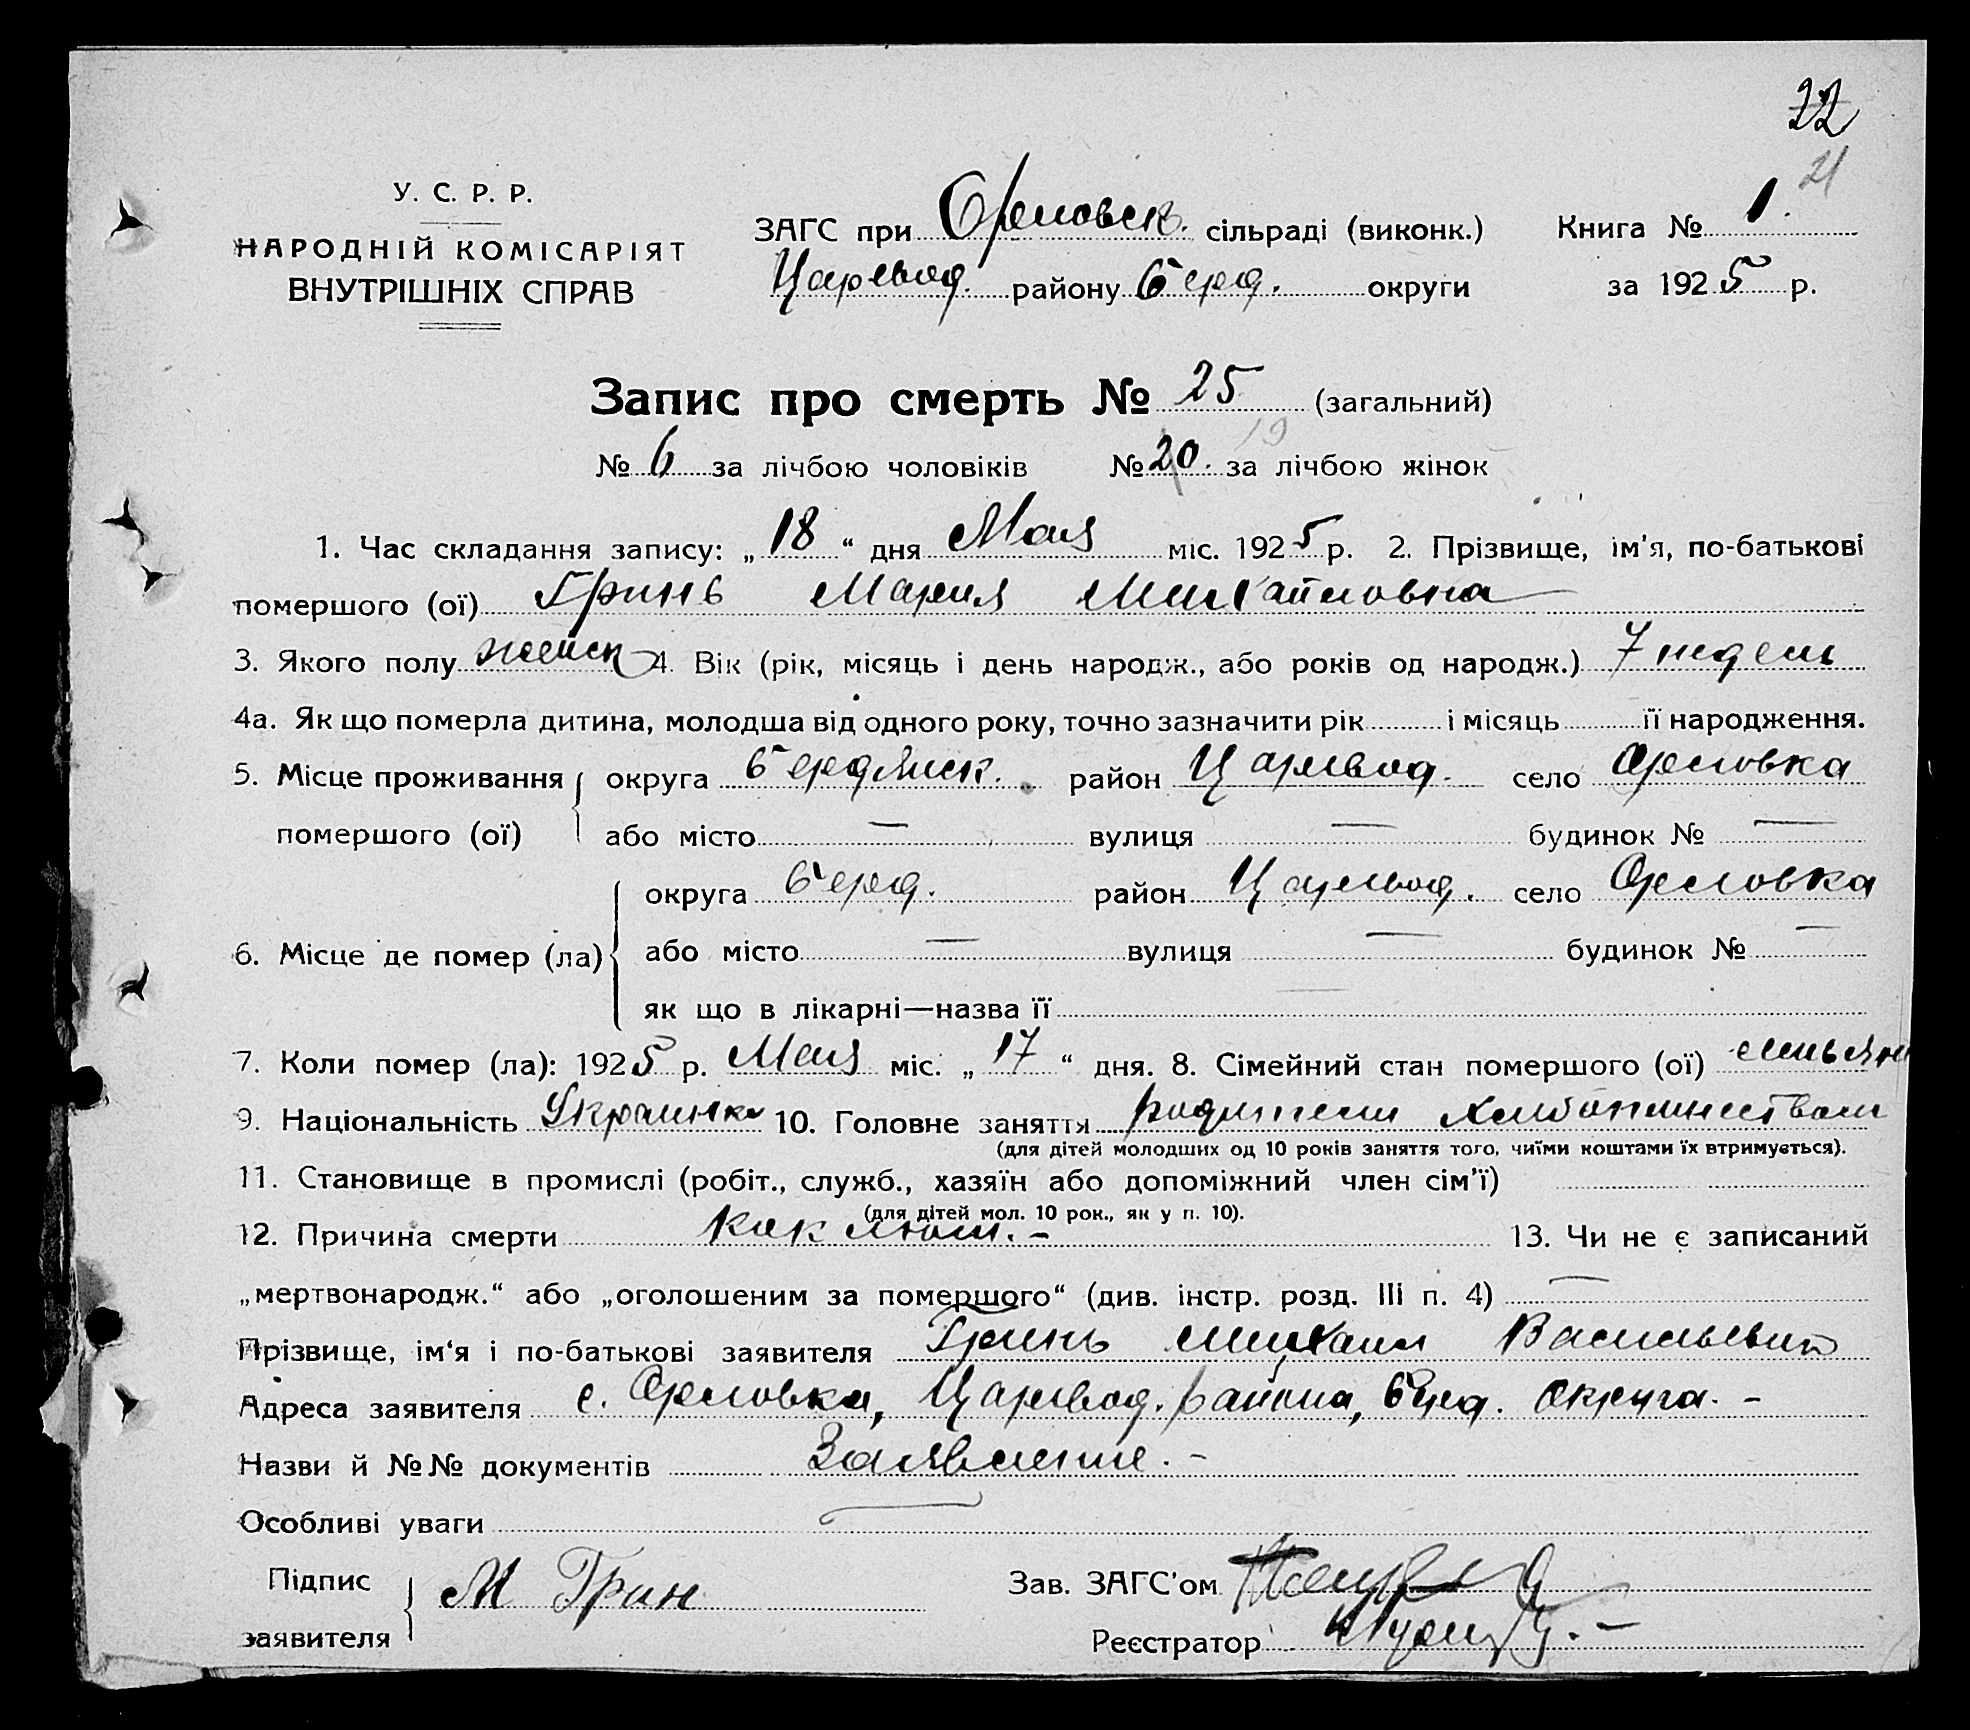 22
21
У. С. Р. Р.
НАРОДНІЙ КОМІСАРІЯТ
ВНУТРІШНІХ СПРАВ
ЗАГС при Орловск. сільраді (виконк.) Книга № 1.
Царевод. району Берд. округи за 1925 р.
Запис про смерть № 25 (загальний)
19
№ 6 за лічбою чоловіків № 20. за лічбою жінок
1. Час складання запису: „18“ дня Мая міс. 1925 р. 2. Прізвище, ім’я, по-батькові
помершого (ої) Гринь Мария Михайловна
3. Якого полу женск 4. Вік (рік, місяць і день народж., або років од народж.) 7 недель
4а. Як що померла дитина, молодша від одного року, точно зазначити рік і місяць її народження.
5. Місце проживання округа Бердянск. район Царевод. село Орловка
помершого (ої) або місто — вулиця — будинок № —
округа Берд. район Царевод. село Орловка
6. Місце де помер (ла) або місто — вулиця — будинок № —
як що в лікарні—назва її —
7. Коли помер (ла): 1925 р. Мая міс. „17“ дня. 8. Сімейний стан помершого (ої)
9. Національність Украинка 10. Головне заняття родители хлебопашеством
(для дітей молодших од 10 років заняття того, чиїми коштами їх втримується).
11. Становище в промислі (робіт., служб., хазяїн або допоміжний член сім’ї)
(для дітей мол. 10 рок., як у п. 10).
12. Причина смерти коклюш. - 13. Чи не є записаний
„мертвонародж.“ або „оголошеним за помершого“ (див. інстр. розд. III п. 4) —
Прізвище, ім‘я і по-батькові заявителя Гринь Михаил Васильевич
Адреса заявителя с. Орловка, Царевод. района, Берд. округа. -
Назви й №№ документів Заявление. -
Особливі уваги —
Підпис М Грин Зав. ЗАГС’ом
заявителя Реєстратор